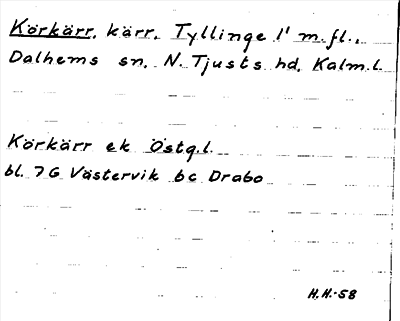 Körkärr, kärr, Tyllinge 1¹ m.fl.,
Dalhems sn, N. Tjusts hd, Kalm.l.
Körkärr ek Östg.l.
bl. 7G Västervik bc Drabo
H.H.-58